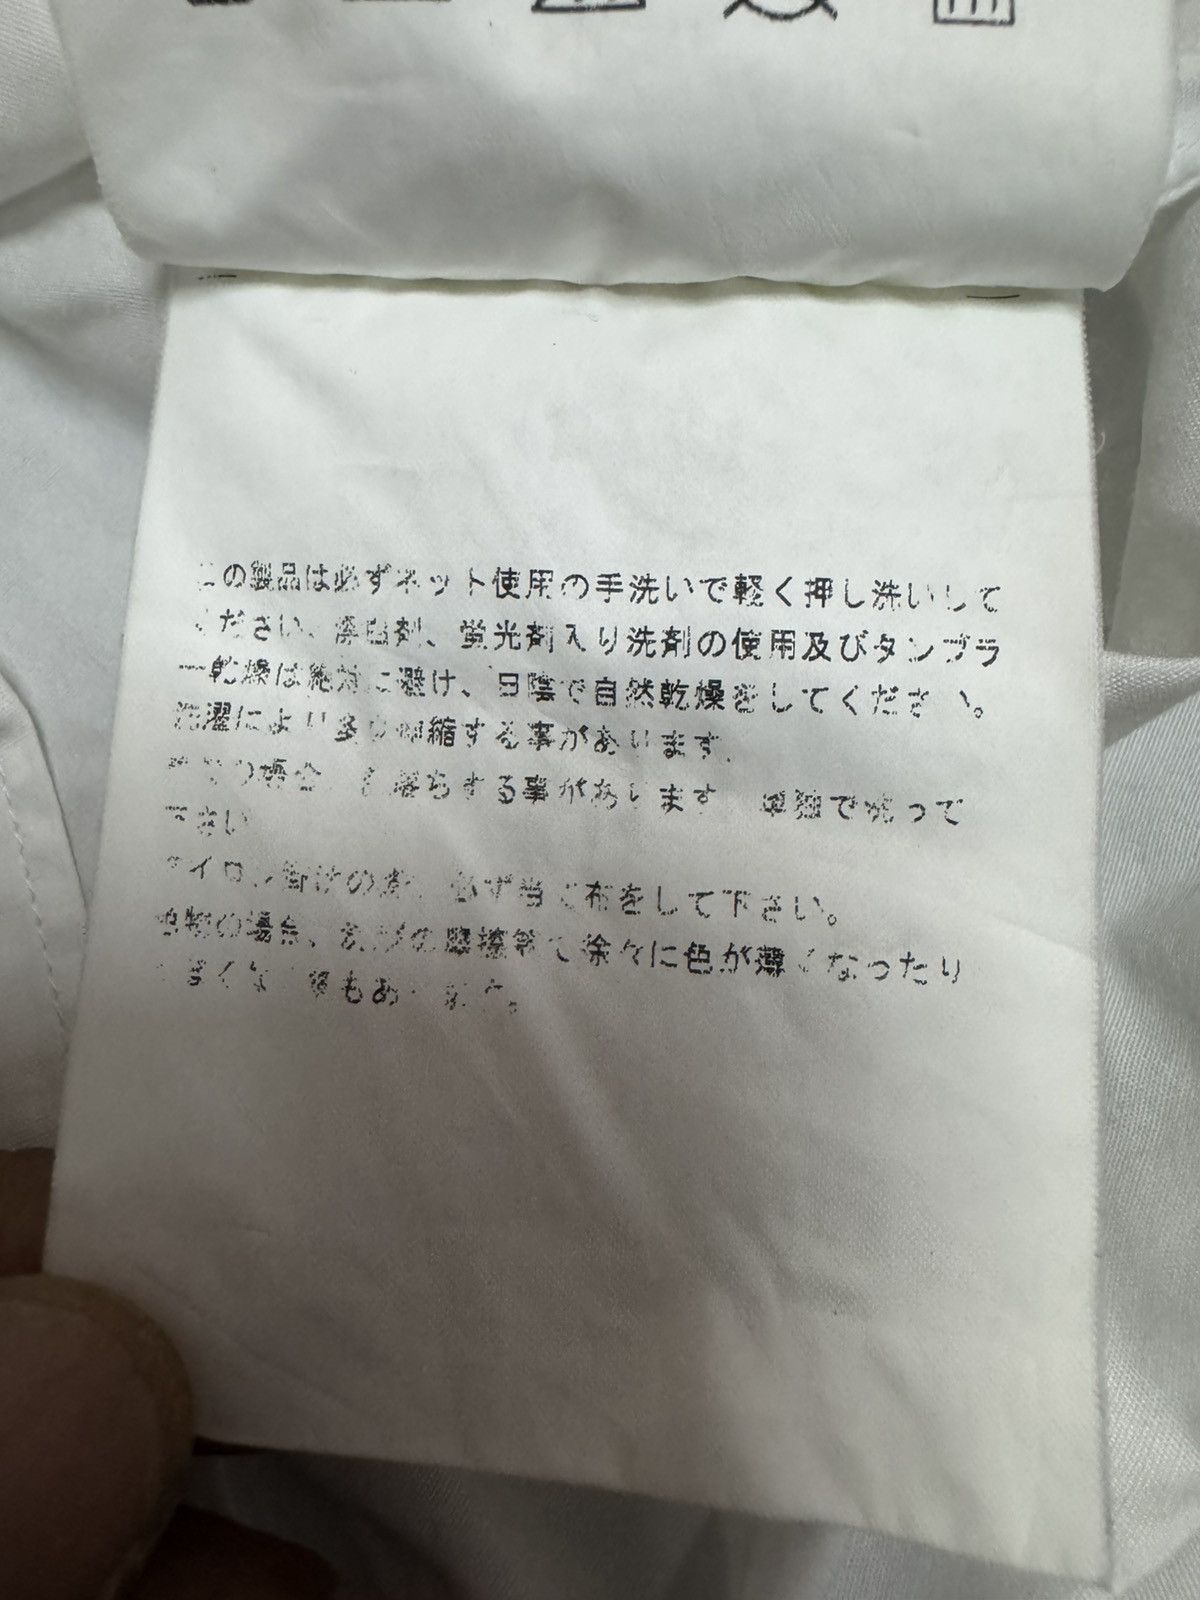 この製品は必ずネット使用の手洗いで軽く押し洗いして
ください、漂白剤、蛍光剤入り洗剤の使用及びタンブラ
ー乾燥は絶対に避け、日陰で自然乾燥をしてください。
洗濯により多少収縮する事があります。
落ちする事があります 単独で洗って
下さい
アイロン掛けの際、必ず当て布をして下さい。
色物の場合、の摩擦等で徐々に色が薄くなったり
事もあります。